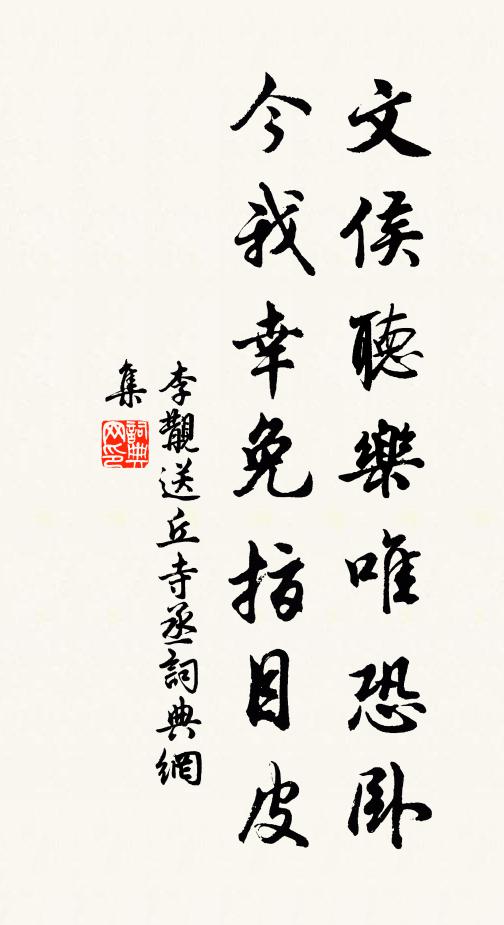 文侯聽樂唯恐卧
今我幸免指目皮
李觀送丘寺丞詞典網
集
詞典
网印